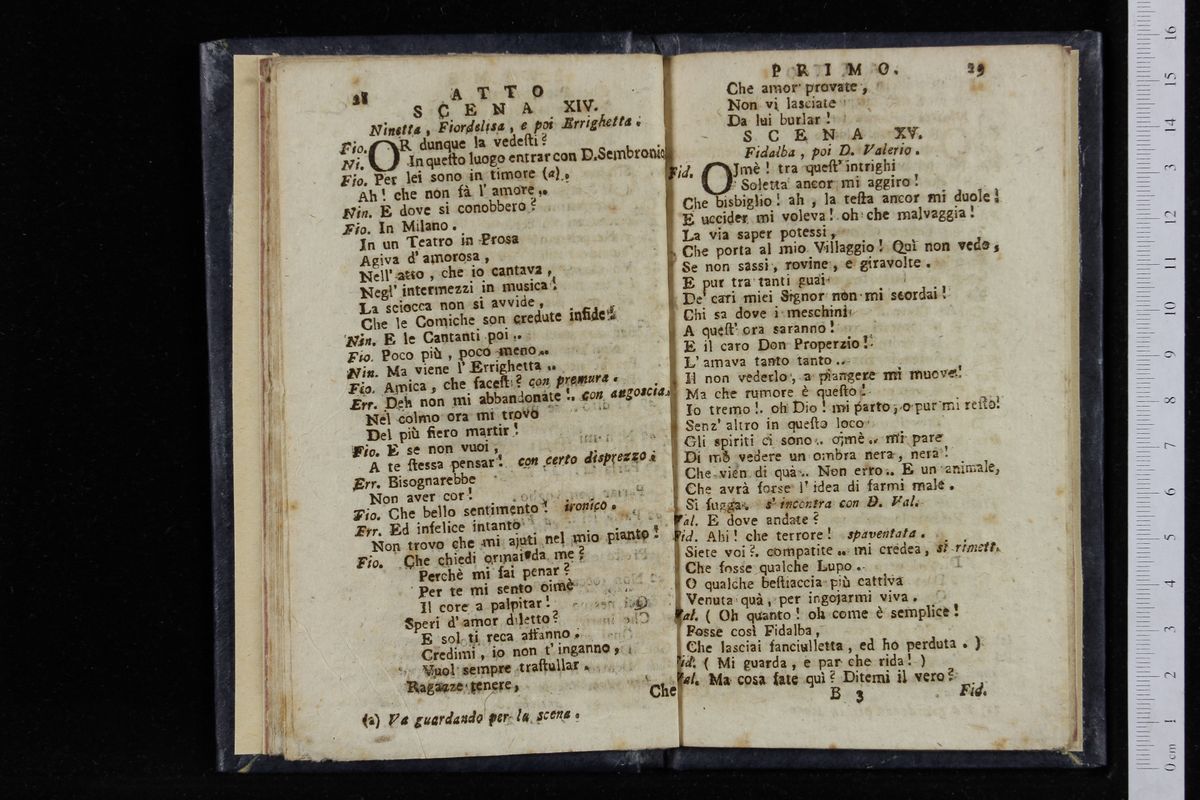 28
ATTO
SCENA XIV.
Ninetta, Fiordelisa, e poi Errighetta.
Fio. OR dunque la vedesti?
Ni. In questo luogo entrar con D. Sembronio
Fio. Per lei sono in timore (a).
Ah! che non fà l'amore..
Nin. E dove si conobbero?
Fio. In Milano.
In un Teatro in Prosa
Agiva d'amorosa,
Nell' atto, che io cantava,
Negl' intermezzi in musica!
La sciocca non si avvide,
Che le Comiche son credute infide!
Nin. E le Cantanti poi..
Fio. Poco più, poco meno..
Nin. Ma viene l'Errighetta..
Fio. Amica, che facesti? con premura.
Err. Deh non mi abbandonate!. con angoscia.
Nel colmo ora mi trovo
Del più fiero martir!
Fio. E se non vuoi,
A te stessa pensar! con certo disprezzo.
Err. Bisognarebbe
Non aver cor!
Fio. Che bello sentimento! ironico.
Err. Ed infelice intanto
Non trovo che mi ajuti nel mio pianto!
Fio. Che chiedi ormai da me?
Perchè mi fai penar?
Per te mi sento oimè
Il core a palpitar!
Speri d'amor diletto?
E sol ti reca affanno.
Credimi, io non t'inganno,
Vuol sempre trastullar.
Ragazze tenere,
Che
(a) Va guardando per la scena.
PRIMO. 29
Che amor provate,
Non vi lasciate
Da lui burlar!
SCENA XV.
Fidalba, poi D. Valerio.
Fid. OJmè! tra quest' intrighi
Soletta ancor mi aggiro!
Che bisbiglio! ah, la testa ancor mi duole!
E uccider mi voleva! oh che malvaggia!
La via saper potessi,
Che porta al mio Villaggio! Quì non vedo,
Se non sassi, rovine, e giravolte.
E pur tra tanti guai
De' cari miei Signor non mi scordai!
Chi sa dove i meschini
A quest' ora saranno!
E il caro Don Properzio!
L'amava tanto tanto..
Il non vederlo, a piangere mi muove!
Ma che rumore è questo!
Io tremo!. oh Dio! mi parto, o pur mi resto!
Senz' altro in questo loco
Gli spiriti ci sono.. ojmè.. mi pare
Di mè vedere un ombra nera, nera!
Che vien di quà.. Non erro.. E un animale,
Che avrà forse l'idea di farmi male.
Si fugga. s' incontra con D. Val.
Val. E dove andate?
Fid. Ahi! che terrore! spaventata.
Siete voi?. compatite.. mi credea, si rimett.
Che fosse qualche Lupo..
O qualche bestiaccia più cattiva
Venuta quà, per ingojarmi viva.
Val. (Oh quanto! oh come è semplice!
Fosse così Fidalba,
Che lasciai fanciulletta, ed ho perduta.)
Fid. (Mi guarda, e par che rida!)
Val. Ma cosa fate quì? Ditemi il vero?
B 3 Fid.